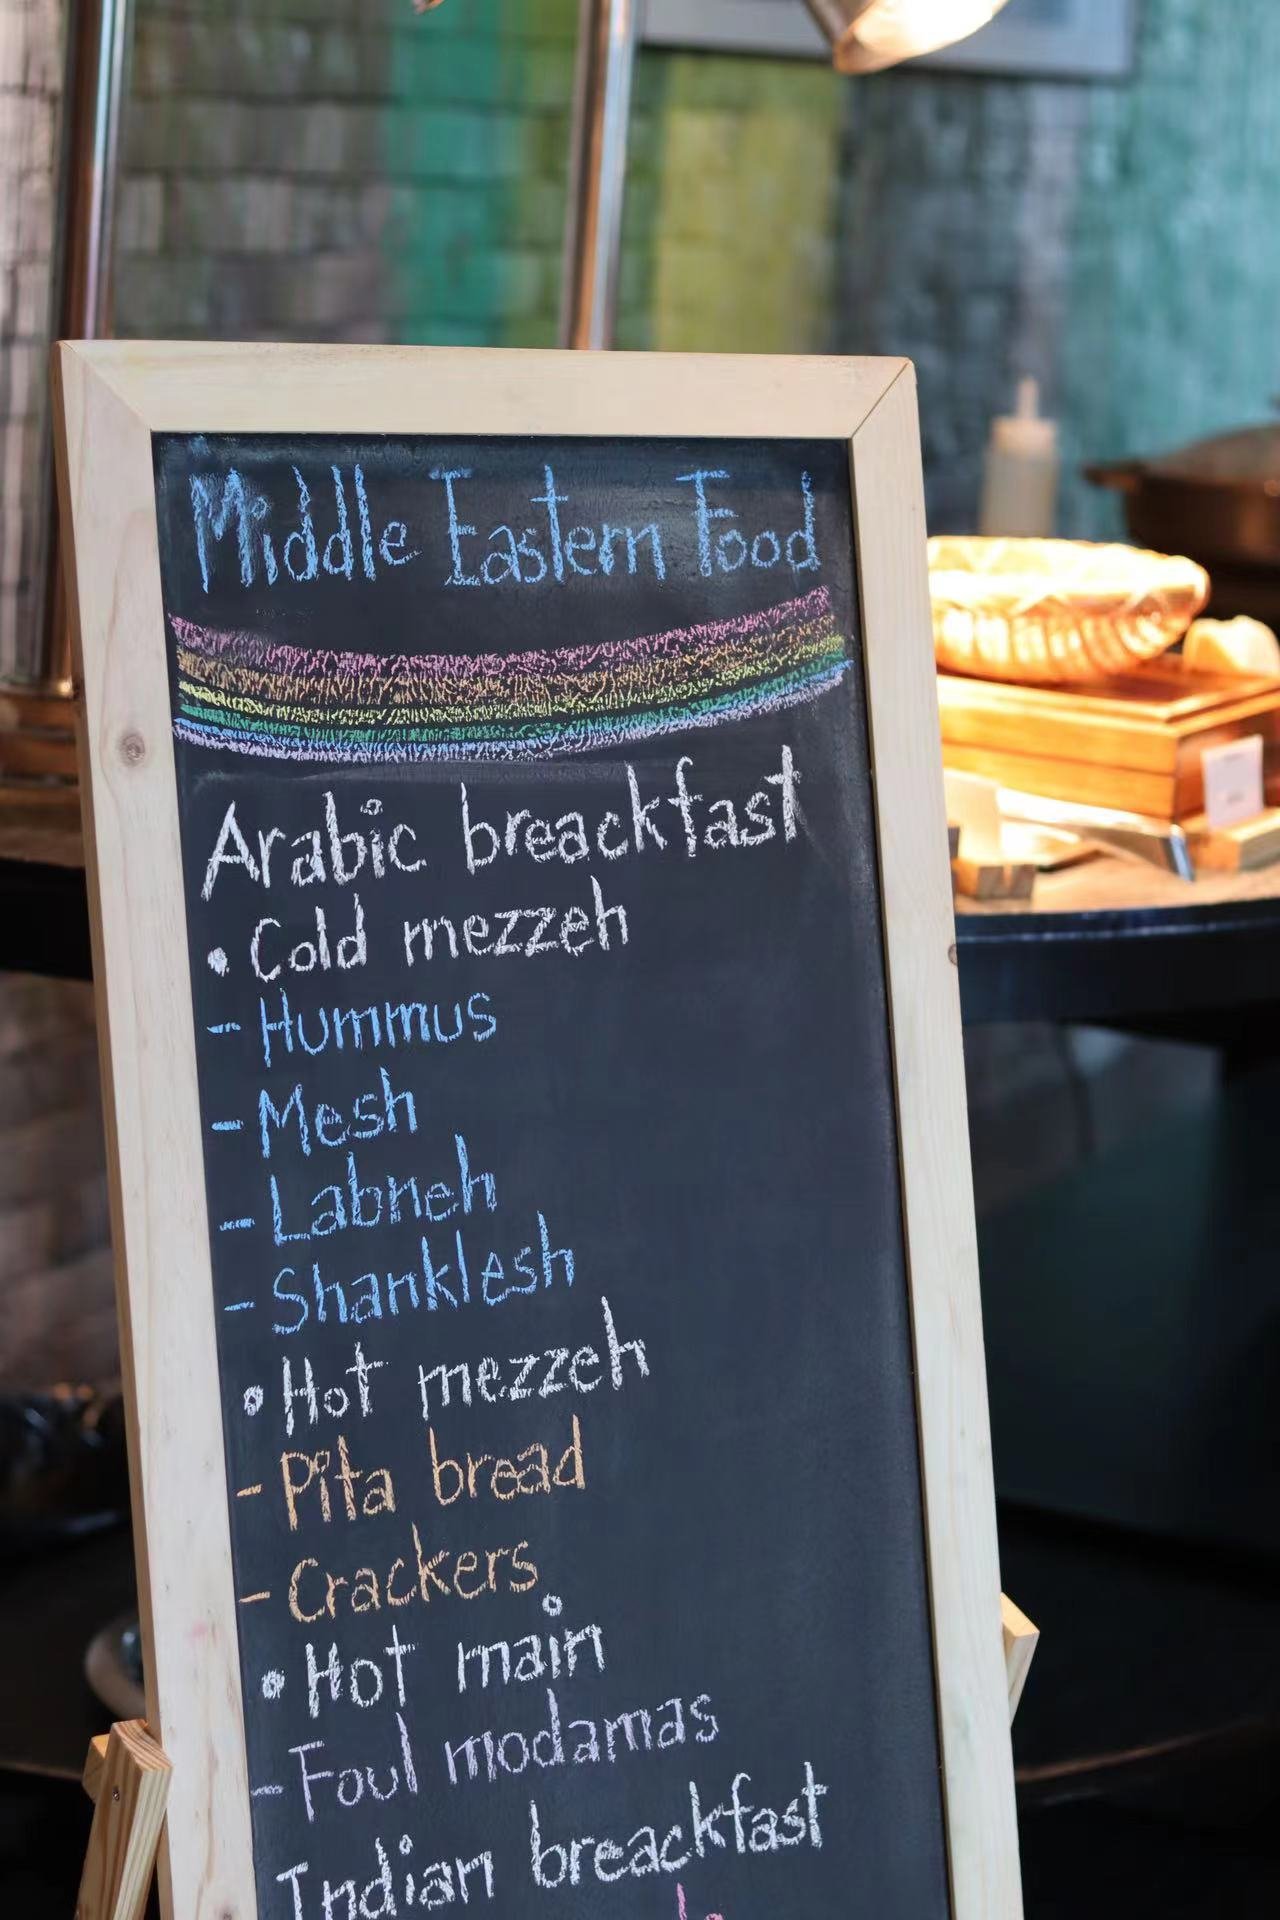 Middle Eastern Food
Arabic breackfast
• Cold mezzeh
- Hummus
- Mesh
- Labneh
- Shanklesh
• Hot mezzeh
- Pita bread
- Crackers
• Hot main
- Foul modamas
Indian breackfast